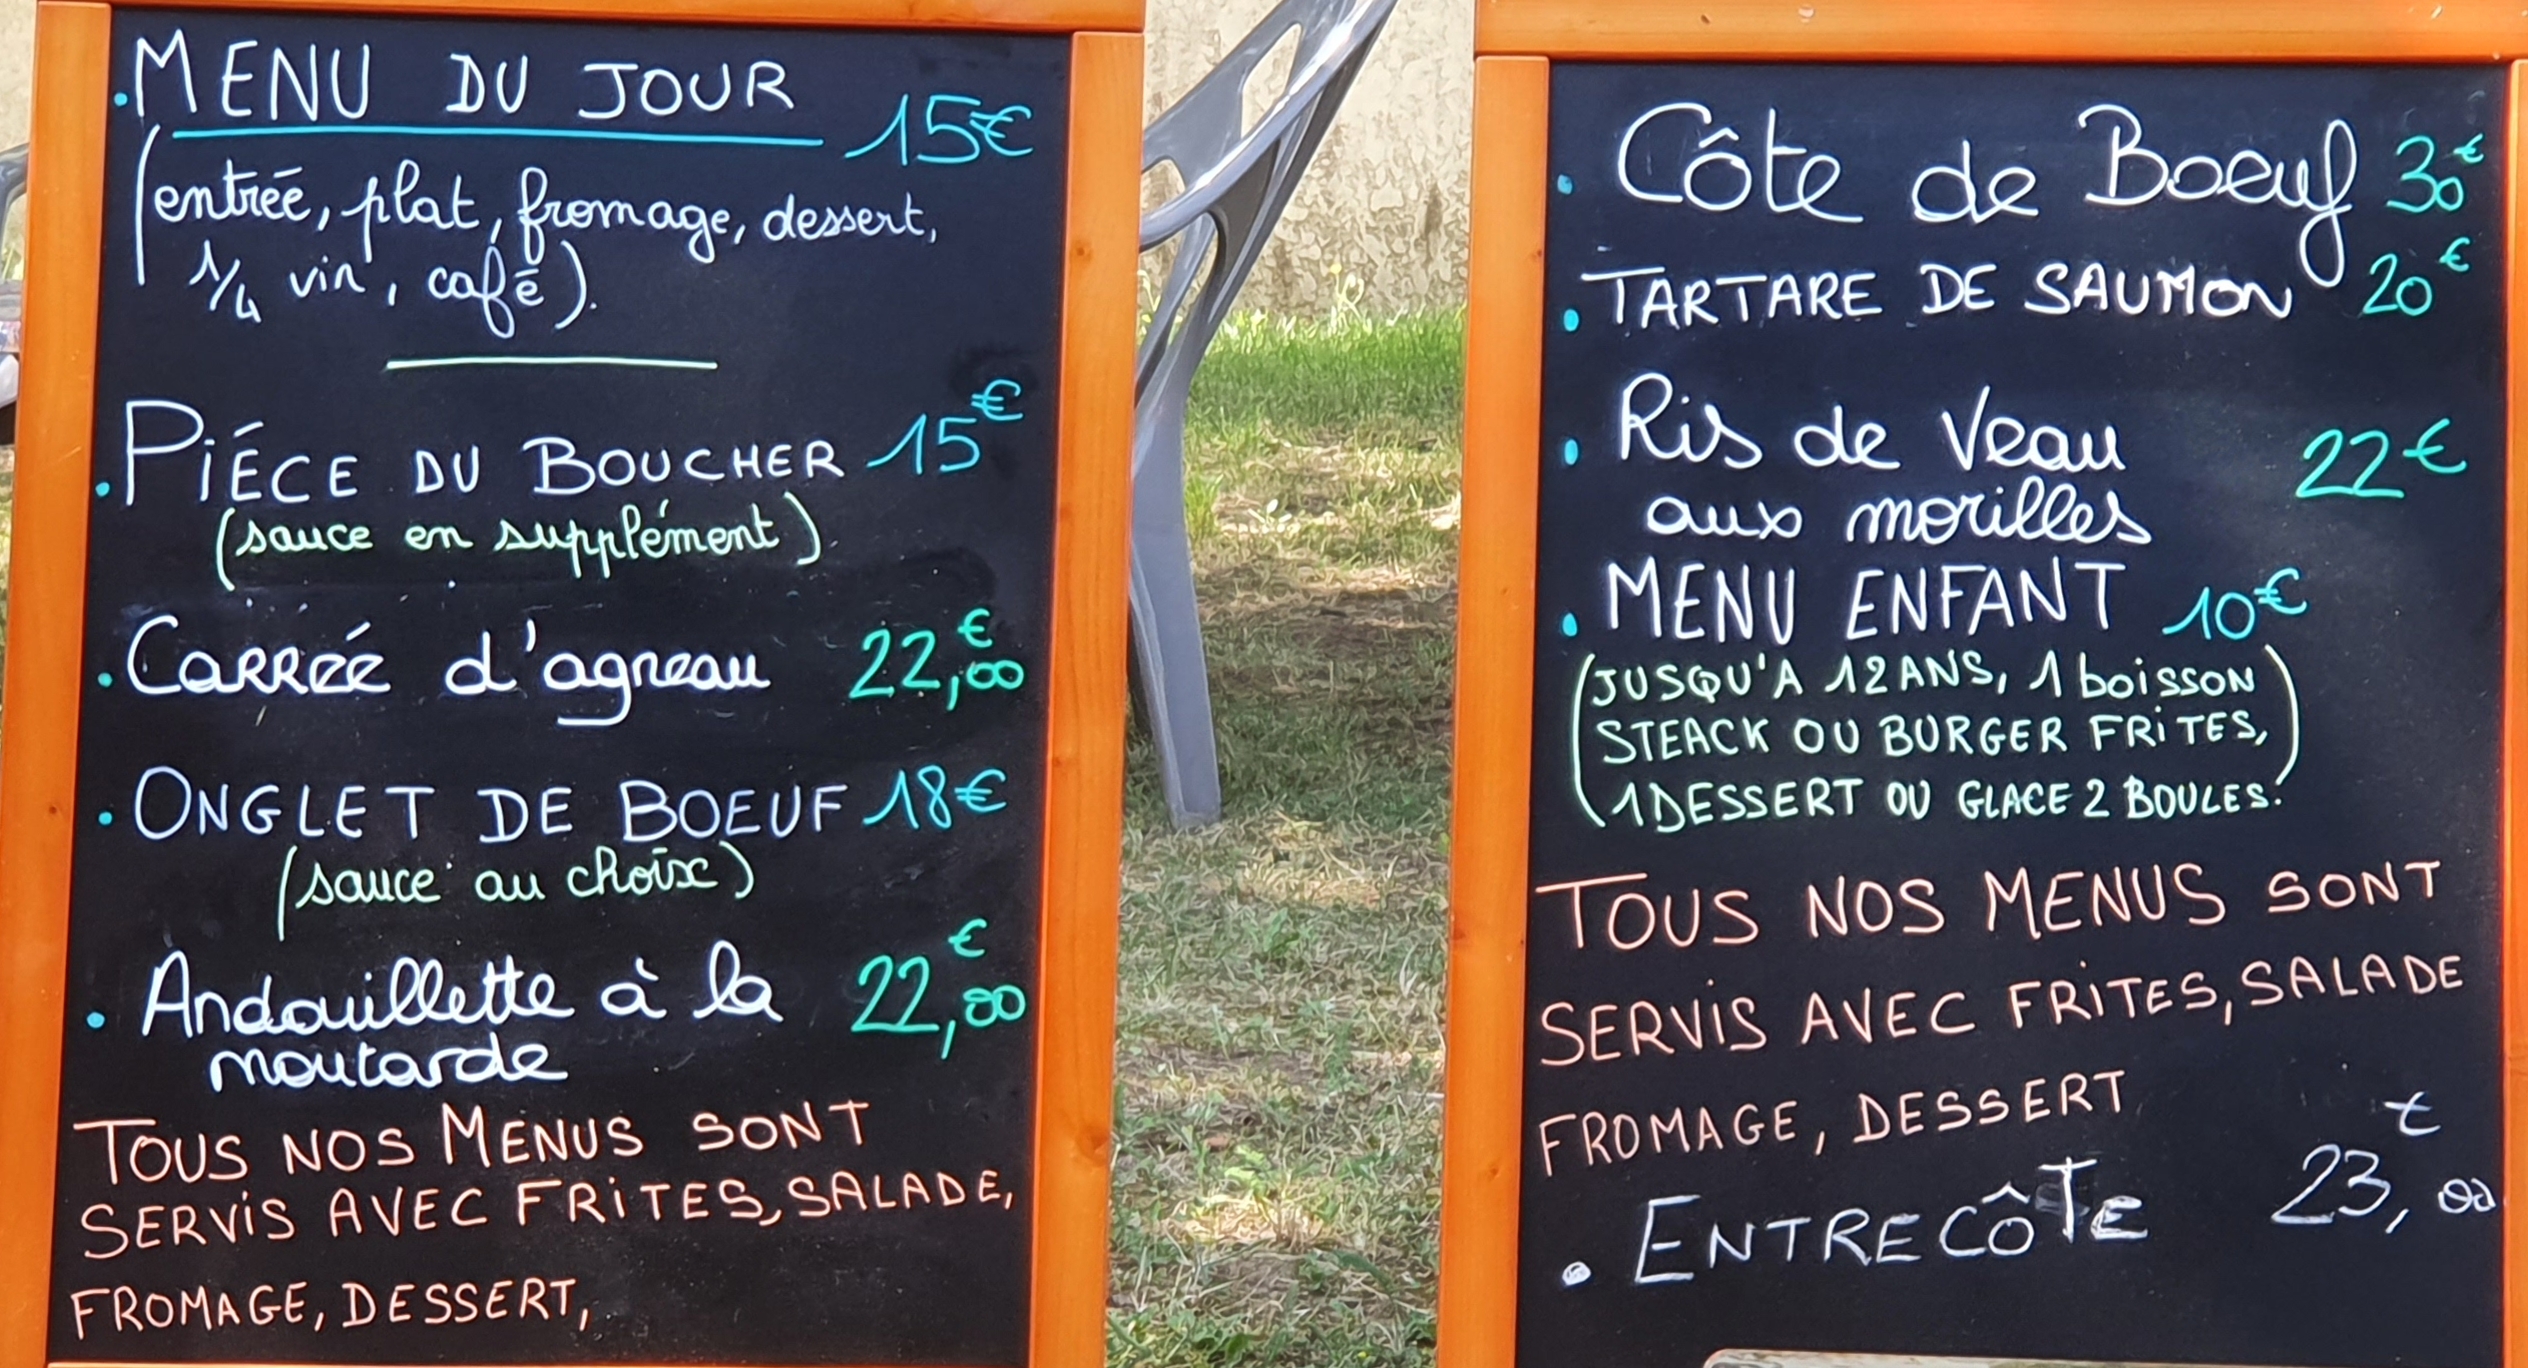 . MENU DU JOUR 15€
(entrée, plat, fromage, dessert,
1/4 vin, café).
. PIÉCE DU BOUCHER 15€
(sauce en supplément).
. CARRÉE d'agneau 22,00€
. ONGLET DE BOEUF 18€
(sauce au choix)
. Andouillette à la 22,00€
moutarde
TOUS NOS MENUS SONT
SERVIS AVEC FRITES, SALADE,
FROMAGE, DESSERT,
. Côte de Boeuf 30€
. TARTARE DE SAUMON 20€
. Ris de Veau 22€
aux morilles
. MENU ENFANT 10€
(JUSQU'A 12 ANS, 1 boisson
STEACK OU BURGER FRITES,
1 DESSERT OU GLACE 2 BOULES.)
TOUS NOS MENUS SONT
SERVIS AVEC FRITES, SALADE
FROMAGE, DESSERT
. ENTRECÔTE 23,00€